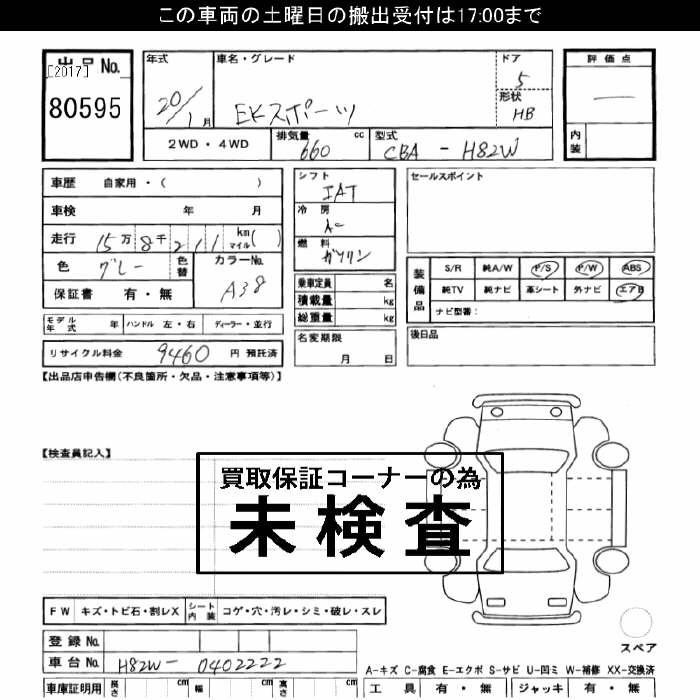 この車両の土曜日の搬出受付は17:00まで
出品No.
[2017]
80595
年式
20/1月
車名・グレード
EKスポーツ
ドア
5
形状
HB
評価点
—
内装
2WD・4WD
排気量
660 cc
型式
CBA - H82W
車歴 自家用・( )
車検 年 月
走行 15万8千211 km マイル( )
色 グレー 色替
カラーNo.
A38
保証書 有・無
シフト
IAT
冷房
燃料
ガソリン
乗車定員 名
積載量 kg
総重量 kg
セールスポイント
装備品
S/R 純A/W P/S P/W ABS
純TV 純ナビ 革シート 外ナビ エアB
ナビ型番：
モデル年式 年 ハンドル 左・右 ディーラー・並行
名変期限
月 日
後日品
リサイクル料金 9460 円 預託済
【出品店申告欄(不良箇所・欠品・注意事項等)】
【検査員記入】
買取保証コーナーの為
未検査
FW キズ・トビ石・割レX シート内装 コゲ・穴・汚レ・シミ・破レ・スレ
登録No.
車台No. H82W- 0402222
スペア
A-キズ C-腐食 E-エクボ S-サビ U-凹ミ W-補修 XX-交換済
車庫証明用 長さ cm 幅 cm 高さ cm
工具 有・無 ジャッキ 有・無